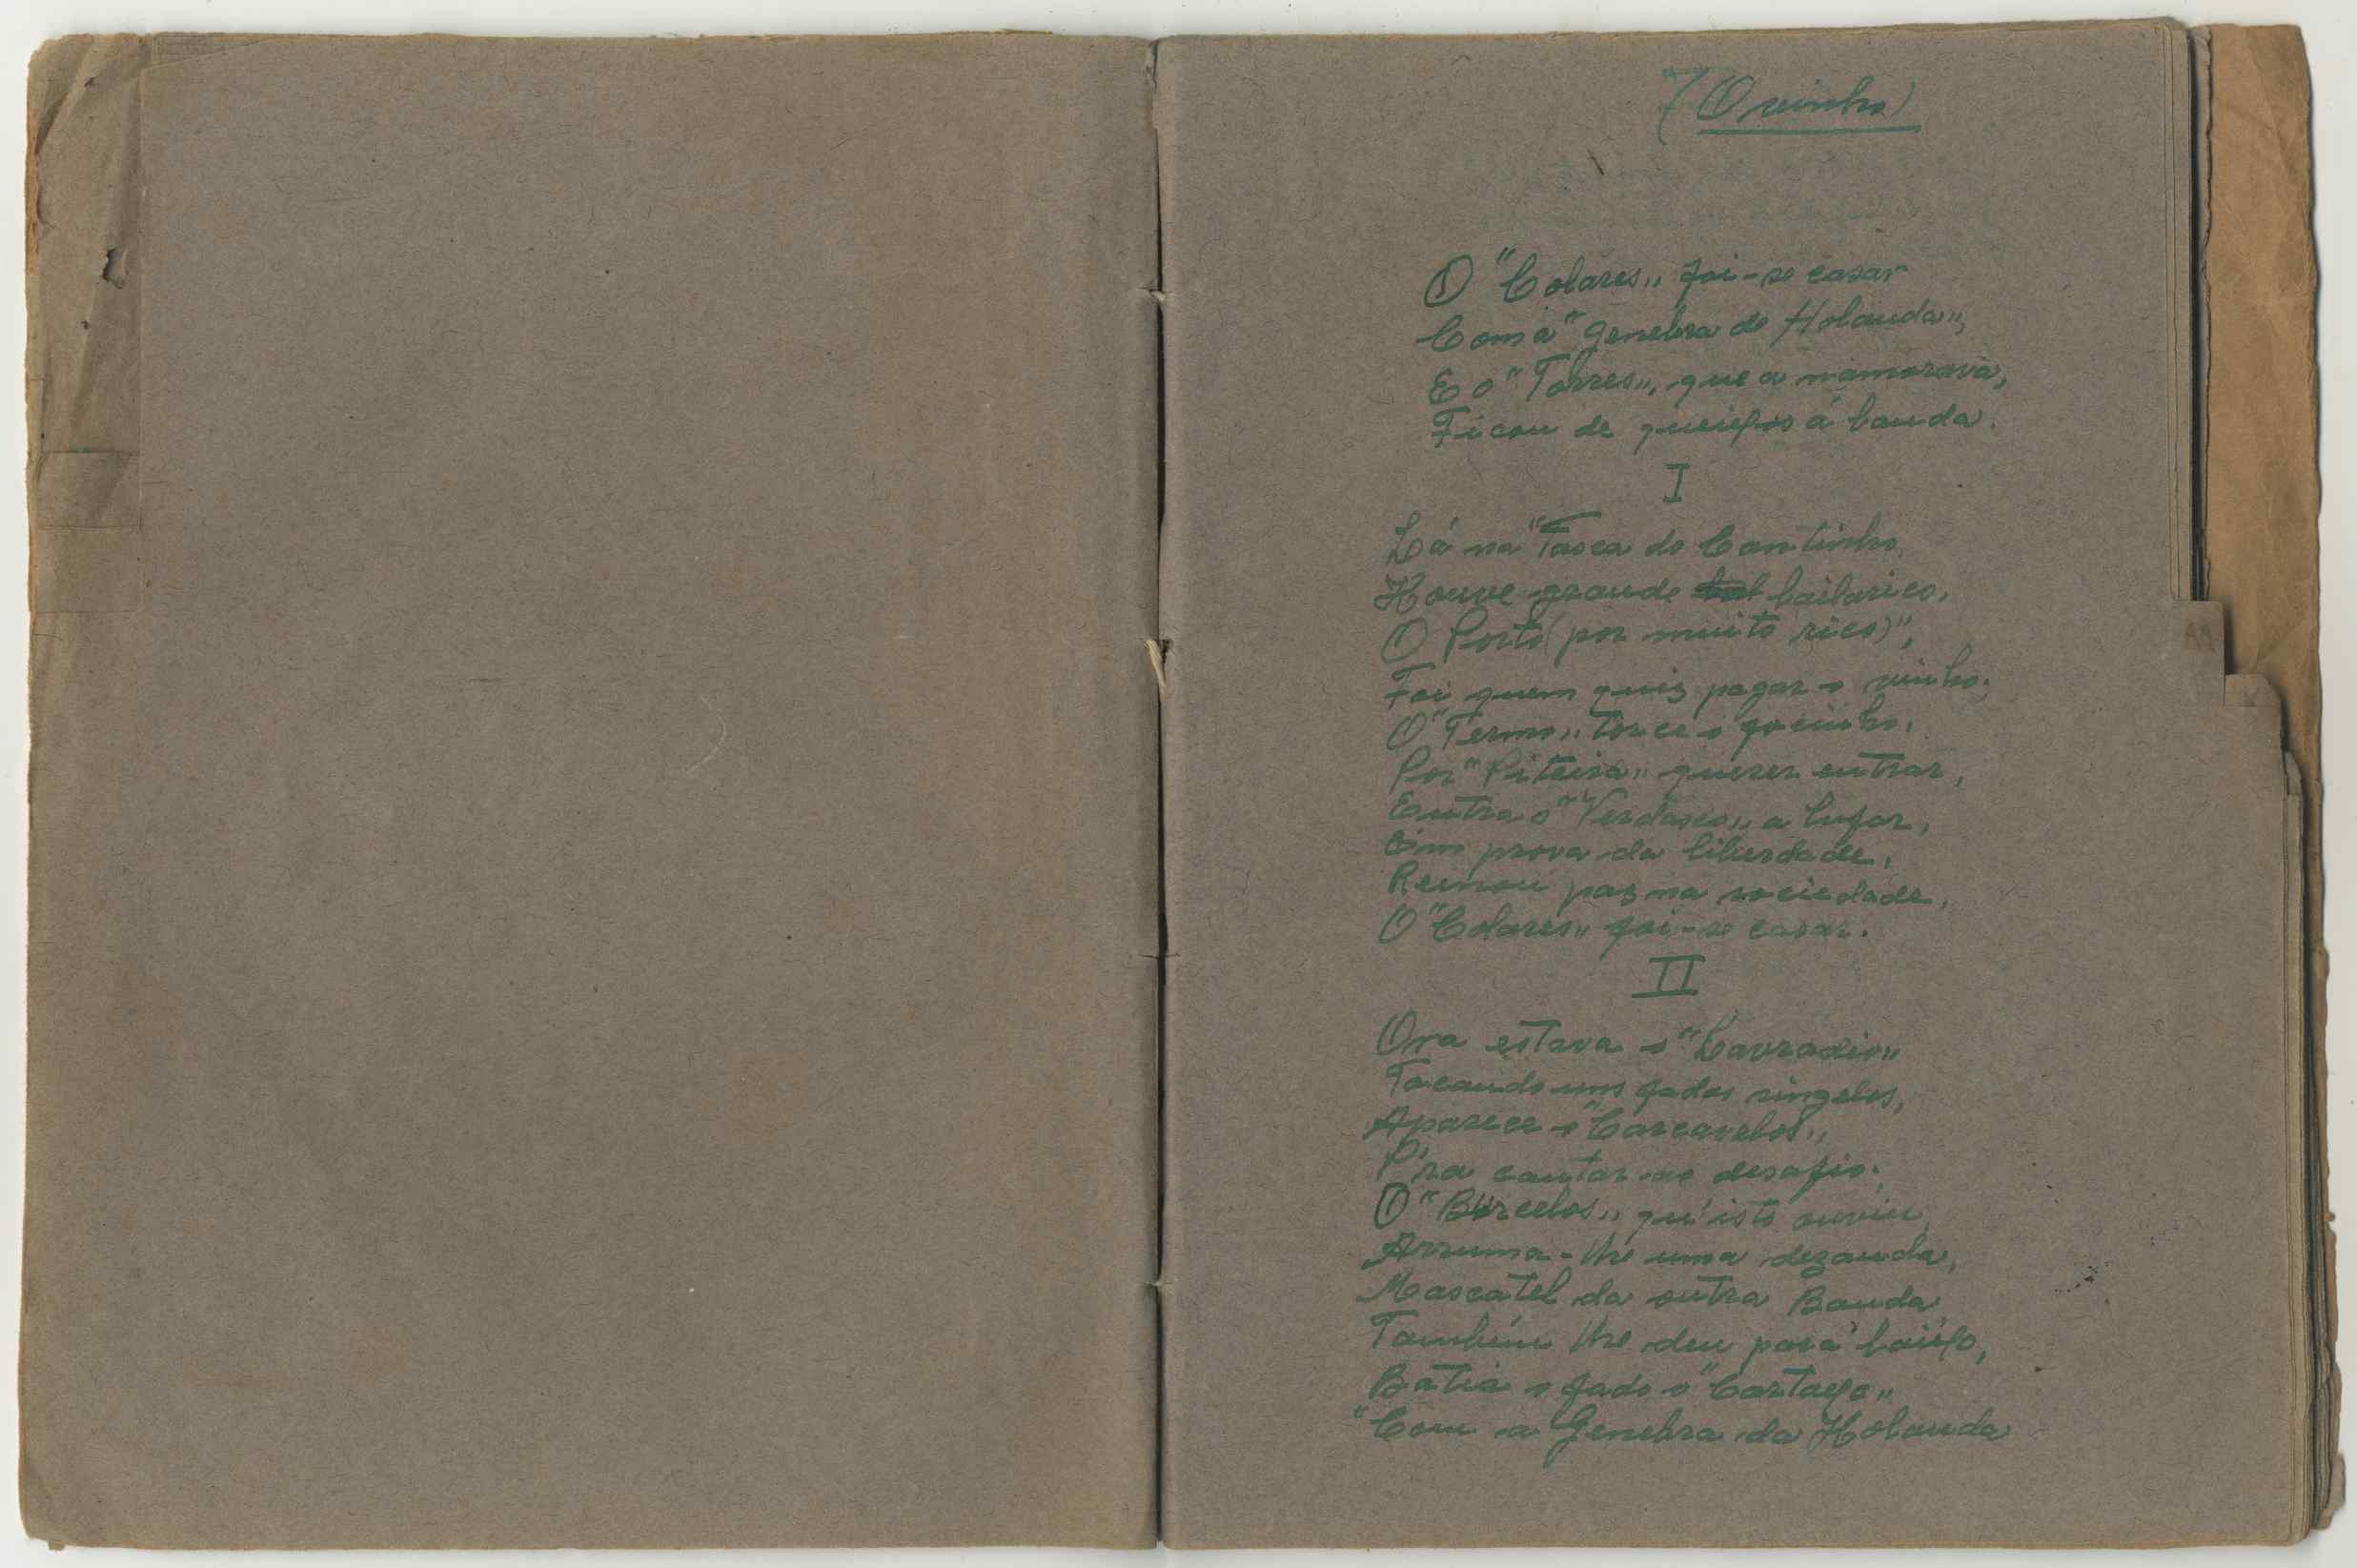 7 (O vinho)
O "Colares" foi-se casar
Com a "Genebra de Holanda",
E o "Torres", que a namorava,
Ficou de queixos á banda.
I
Lá na "Tasca do Cantinho
Houve grande bailarico,
O Porto (por muito rico)",
Foi quem quiz pagar o vinho;
O "Termo" torce o focinho,
Por "Piteira" querer entrar,
Entra o "Verdasco" a bufar,
Em prova da liberdade,
Reinou paz na sociedade,
O "Colares" foi-se casar.
II
Ora estava o "Lavradio"
Tocando uns fados singelos,
Aparece o "Carcavelos",
P'ra cantar ao desafio;
O "Bucelos", qu'isto ouviu
Arruma-lhe uma dezanda,
Moscatel da outra Banda
Também lhe deu para' baixo,
Batia o fado o "Cartaxo"
"Com a Genebra da Holanda